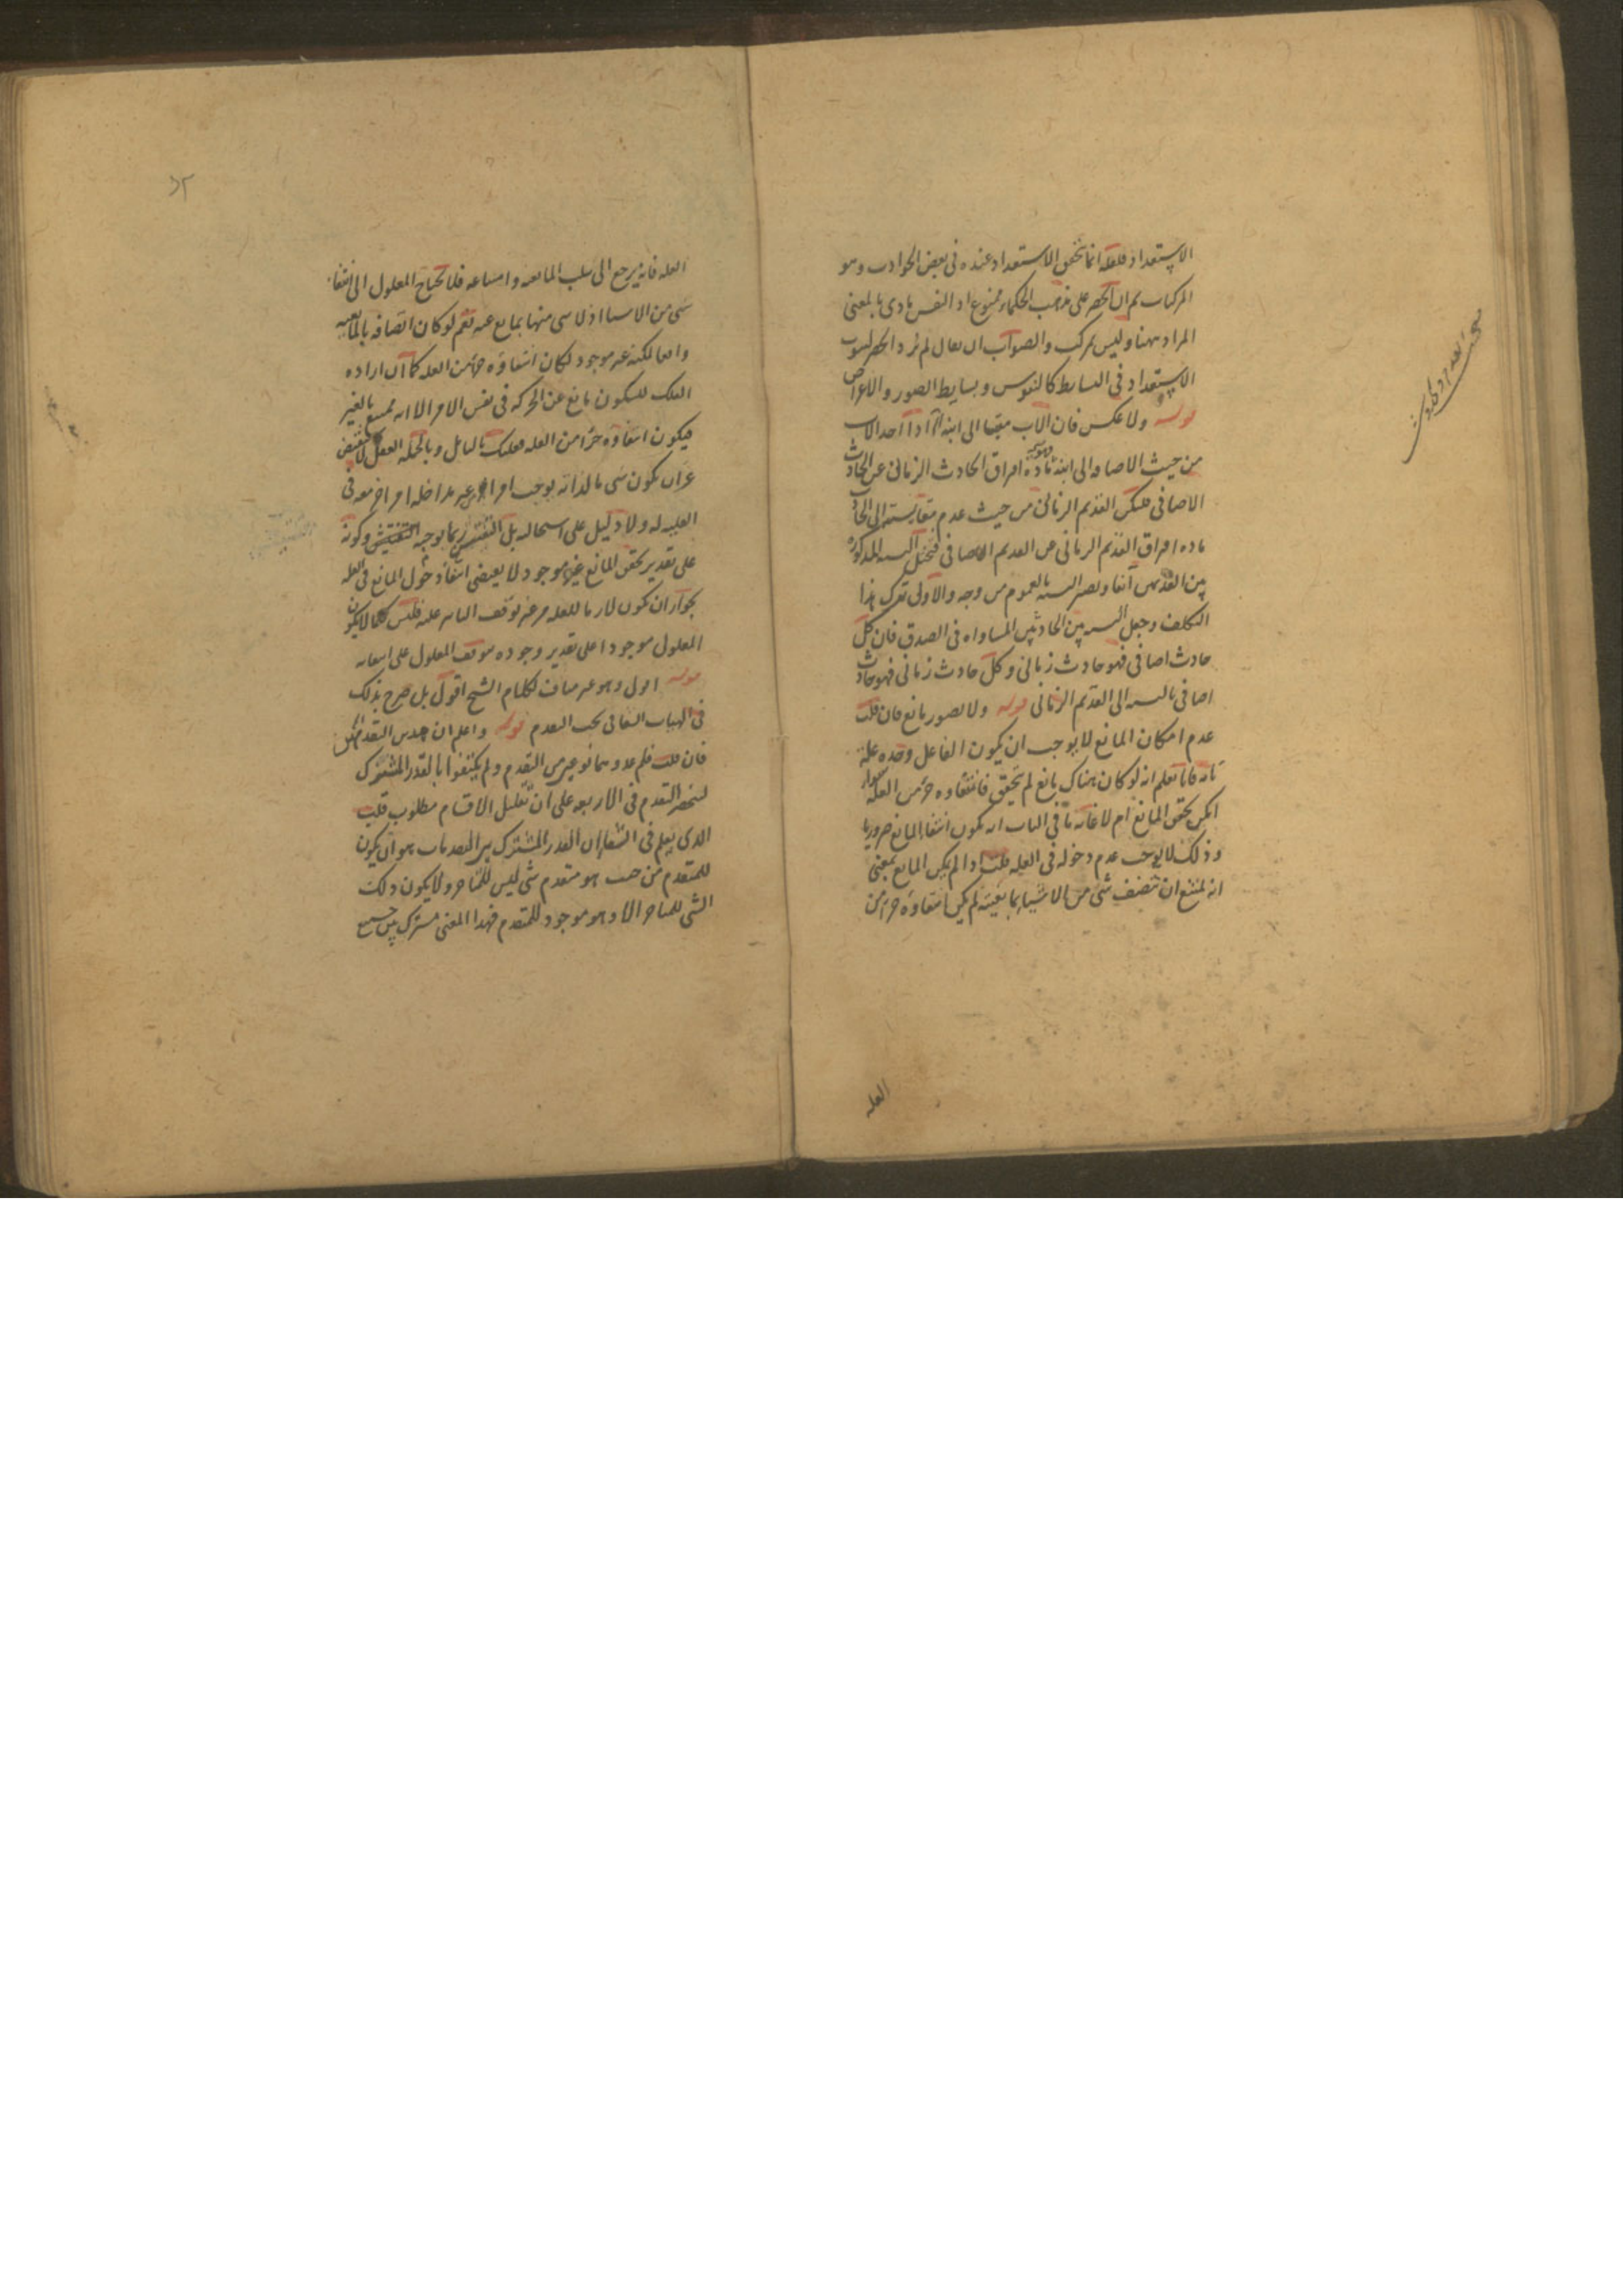 الاستعداد فلعله انما تحقق الاستعداد عنده فى بعض الحوادث وهو
المركبات ثم ان الحصر على مذهب الحكماء ممنوع اذ النفس مادى بالمعنى
المراد ههنا وليس بمركب والصواب ان يقال لم يرد الحصر لثبوت
الاستعداد فى البسايط كالنفوس وبسايط الصور والاعراض
قوله ولا عكس فان الاب مقيسا الى ابنه اذا احد الاب
من حيث الاضافه الى ابنه مادة افتراق الحادث الزمانى عن الحادث
الاضافى فليكن القديم الزمانى من حيث عدم مقايسته الى الحادث
ماده افتراق القديم الزمانى عن القديم الاضافى فتختل النسبه المذكورة
بين القديمين آنفا وتصير النسبه بالعموم من وجه والاولى ترك هذا
التكلف وجعل النسبه بين الحادثين المساواه فى الصدق فان كل
حادث اضافى فهو حادث زمانى وكل حادث زمانى فهو حادث
اضافى بالنسبه الى القديم الزمانى قوله ولا تصور مانع فان قلت
عدم امكان المانع لا يوجب ان يكون الفاعل وحده علة
تامه فانا نعلم انه لو كان هناك مانع لم يتحقق فانتفاؤه جزء من العله سواء
امكن تحقق المانع ام لا غايه ما فى الباب انه يكون انتفاء المانع ضروريا
وذلك لا يوجب عدم دخوله فى العليه قلت اذا لم يكن المانع بمعنى
انه يمتنع ان يتصف شئ من الاشياء بمانعيته لم يكن انتفاؤه جزءا من
العله
العله فانه يرجع الى سلب المانعيه وامتناعه فلا يحتاج المعلول الى انتفاء
شى من الاشيا اذ لا شى منها بمانع عنه نعم لو كان اتصافه بالمانعيه
واقعا لكنه غير موجود لكان انتفاؤه جزء من العله كما ان اراده
الفلك للسكون مانع عن الحركه فى نفس الامر الا انه ممتنع بالغير
فيكون انتفاؤه جزءا من العله فعليك بالتامل وبالجمله العقل لا ينقبض
عن ان يكون شى ما لذاته يوجب امرا من غير مداخله امر اخر معه فى
العليه له ولا دليل على استحاله بل التفتيش ربما يوجبه التفتيش وكونه
على تقدير تحقق المانع غير موجود لا يقتضى انتفاء دخول المانع فى العله
لجواز ان يكون لازما للعله من غير توقف التاثير عليه فليس كلما لا يكون
المعلول موجودا على تقدير وجوده يتوقف المعلول على انتفائه
قوله اقول وهو غير مناف لكلام الشيخ اقول بل صرح بذلك
فى الهيات الشفا فى بحث التقدم قوله واعلم ان هذين التقدمين
فان قلت فلم عدوهما نوعين من التقدم ولم يكتفوا بالقدر المشترك
لينحصر التقدم فى الاربعه على ان تقليل الاقسام مطلوب قلت
الذى يعلم فى الشفا ان القدر المشترك بين التقدمات هو ان يكون
للمتقدم من حيث هو متقدم شئ ليس للمتاخر ولا يكون ذلك
الشى للمتاخر الا وهو موجود للمتقدم فهذا المعنى مشترك بين جميع